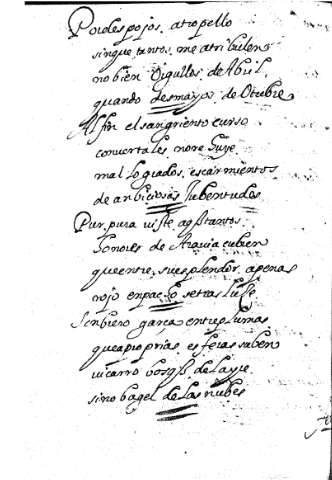 Por despojos, atropello
sinque tantos, me atribulen
no bien orgullos de Abril
quando desmayos de Otubre
Al fin el sangriento curso
con vertales, no re huye
mal logrados, escarmientos
de anbiciosas Jubentudes
Pur pura viste
honores de Aravia cubren
que entre, su esplendor, apenas
rojo enpacho se trasluce
Sonbrero garça entre plumas
que a pro prias, esferas suben
vicarro bosq de
sino bagel de las nubes